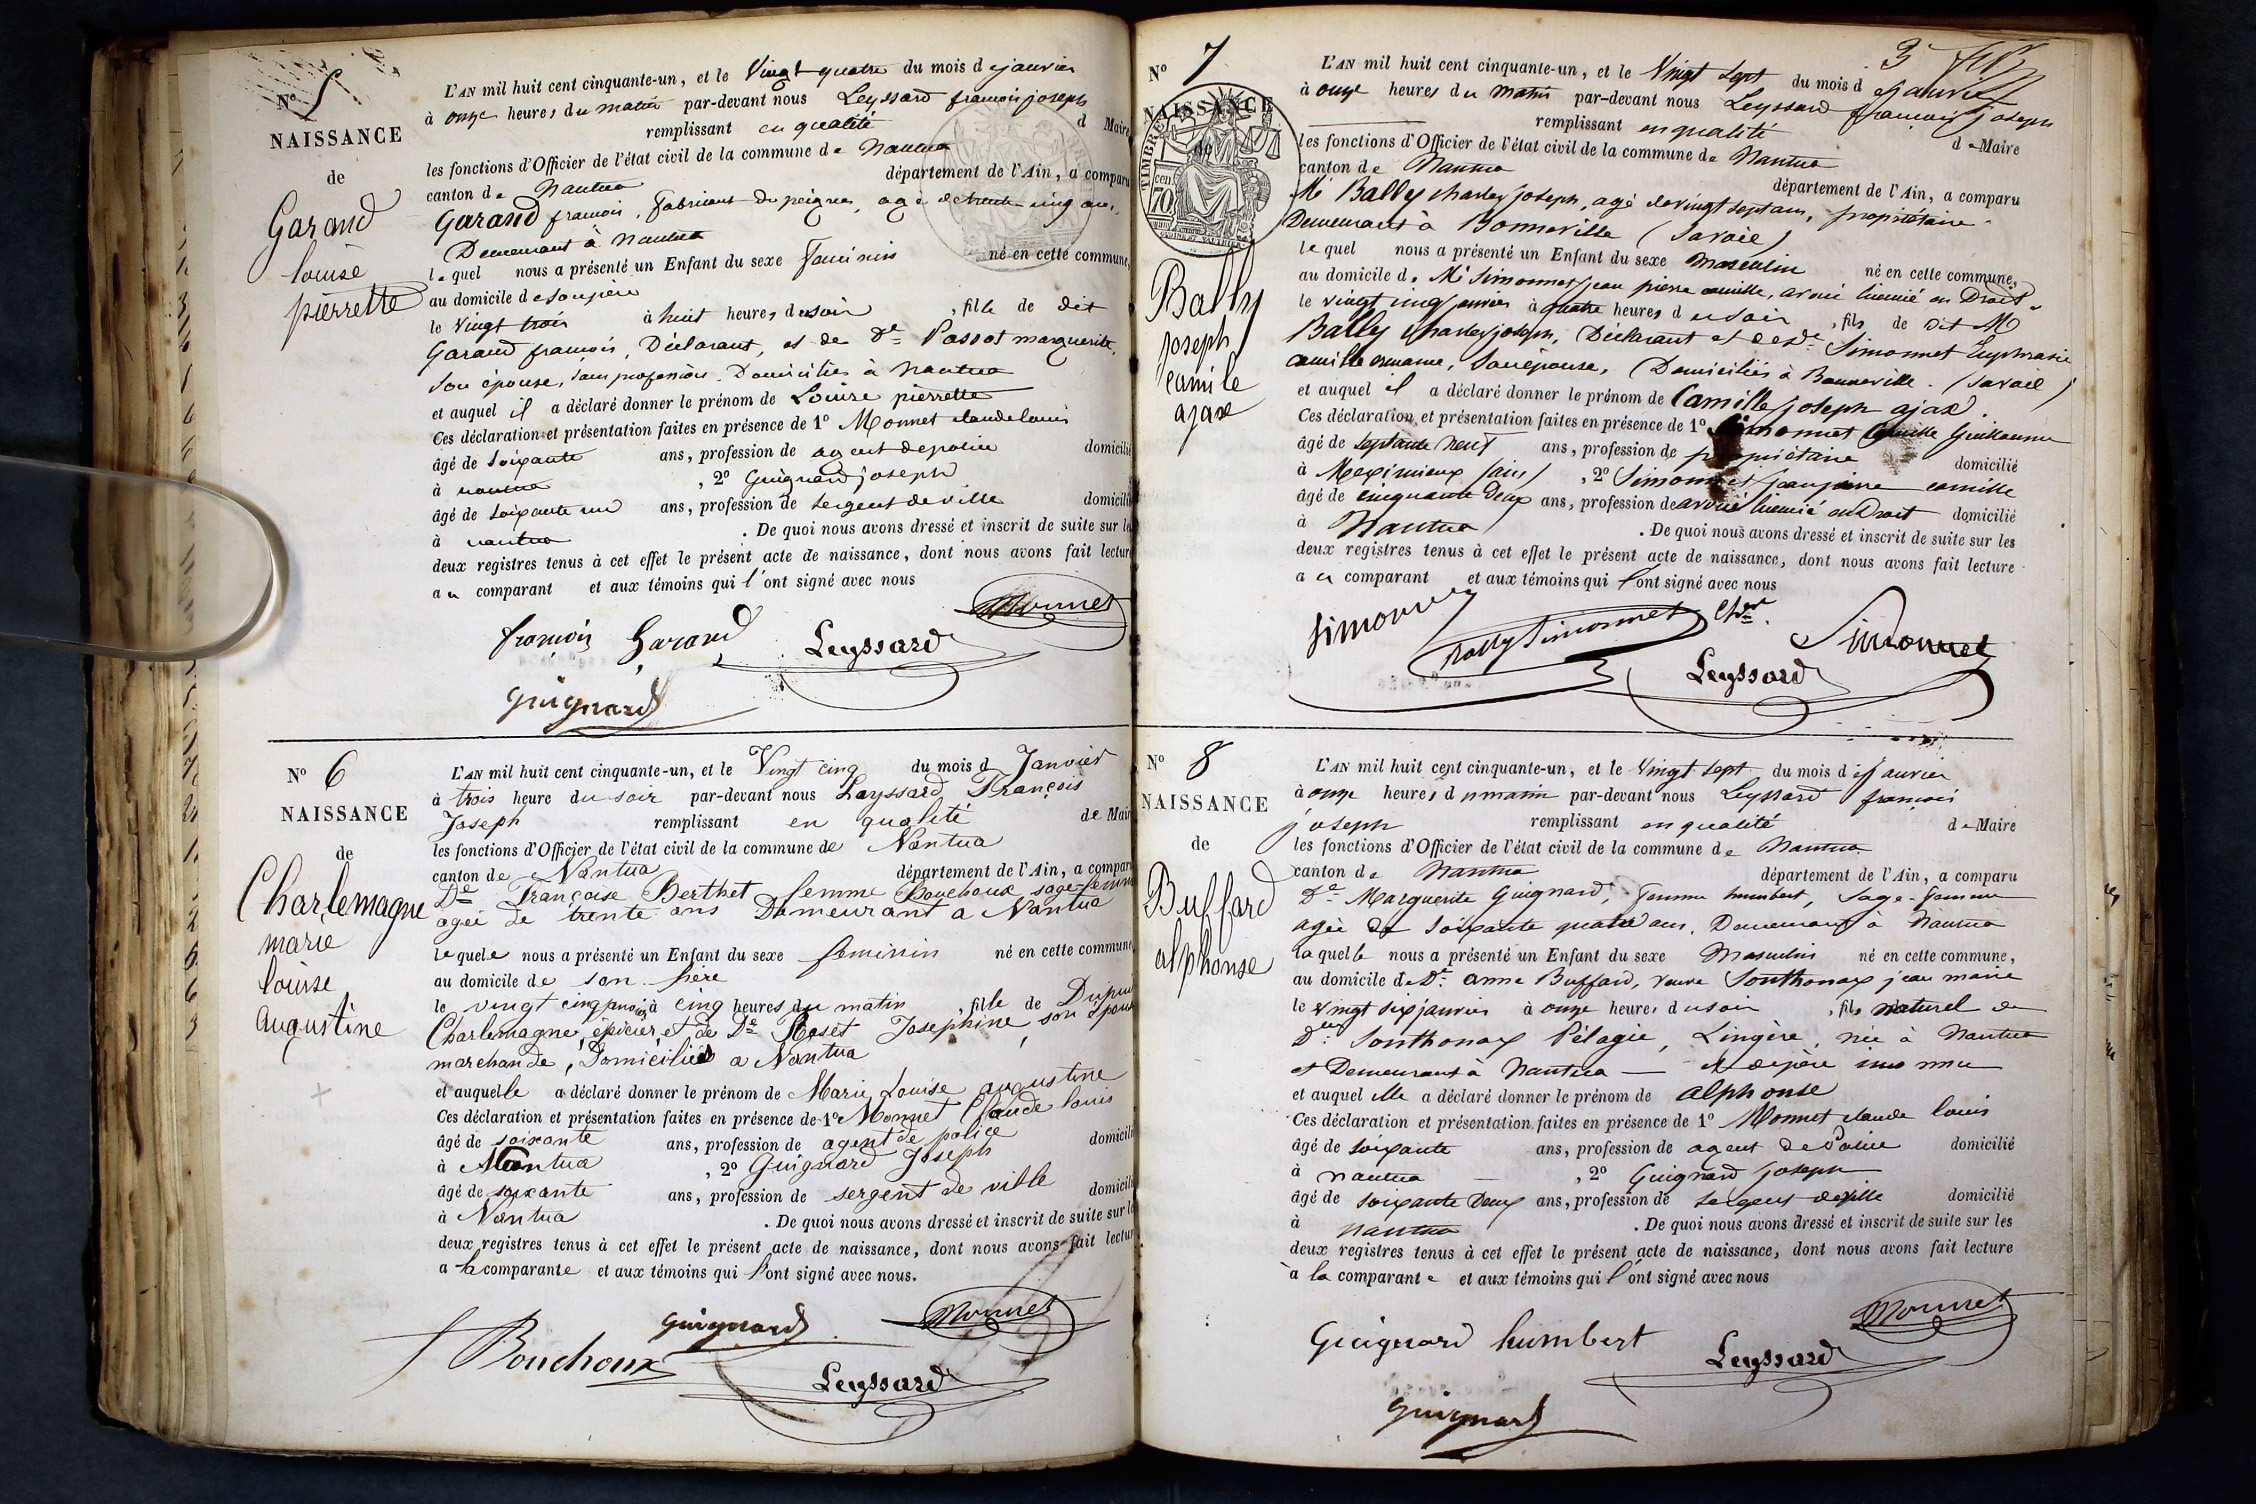 N° 5
NAISSANCE
de
Garand
louise
pierrette
L'AN mil huit cent cinquante-un, et le Vingt quatre du mois d e janvier
à onze heures du matin par-devant nous Leyssard françois joseph
remplissant en qualité d Maire
les fonctions d'Officier de l'état civil de la commune de Nantua
canton de Nantua département de l'Ain, a comparu
Garand françois, fabricant de peignes, agé de trente cinq ans,
Demeurant à Nantua
lequel nous a présenté un Enfant du sexe féminin né en cette commune,
au domicile de son père
le Vingt trois à huit heures du soir, fille de dit
Garand françois, Déclarant, et de De Passot marguerite,
son épouse, sans profession. Domiciliés à Nantua
et auquel il a déclaré donner le prénom de Louise pierrette
Ces déclaration et présentation faites en présence de 1° Monnet claude louis
âgé de soixante ans, profession de agent de police domicilié
à nantua, 2° Guignard joseph
âgé de soixante un ans, profession de sergent de ville domicilié
à nantua. De quoi nous avons dressé et inscrit de suite sur le
deux registres tenus à cet effet le présent acte de naissance, dont nous avons fait lecture
au comparant et aux témoins qui l'ont signé avec nous
Monnet
françois Garand Leyssard
Guignard
N° 6
NAISSANCE
de
Charlemagne
marie
louise
augustine
L'AN mil huit cent cinquante-un, et le Vingt cinq du mois d Janvier
à trois heure du soir par-devant nous Leyssard François
Joseph remplissant en qualité de Mair
les fonctions d'Officier de l'état civil de la commune de Nantua
canton de Nantua département de l'Ain, a comparu
De Françoise Berthet femme Bouchoux sage-femme
agée de trente ans Demeurant a Nantua
lequele nous a présenté un Enfant du sexe feminin né en cette commune
au domicile de son père
le vingt cinq janvier à cinq heures du matin, fille de
Charlemagne, épicier, et de De Roset Josephine, son épouse
marchande, Domiciliés a Nantua
et auquelle a déclaré donner le prénom de Marie Louise augustine
Ces déclaration et présentation faites en présence de 1° Monnet Claude louis
âgé de soixante ans, profession de agent de police domicilié
à Nantua, 2° Guignard Joseph
âgé de soixante ans, profession de sergent de ville domicilié
à Nantua. De quoi nous avons dressé et inscrit de suite sur le
deux registres tenus à cet effet le présent acte de naissance, dont nous avons fait lectur
a la comparante et aux témoins qui l'ont signé avec nous.
Guignard Monnet
f Bouchoux
Leyssard
3
N° 7
NAISSANCE
de
TIMBRE
cen. 70
Bally
joseph
camile
ajax
L'AN mil huit cent cinquante-un, et le Vingt sept du mois d e janvier
à onze heures du matin par-devant nous Leyssard françois joseph
remplissant en qualité de Maire
les fonctions d'Officier de l'état civil de la commune de Nantua
canton de Nantua département de l'Ain, a comparu
Mr Bally charles joseph, agé de vingt sept ans, propriétaire
Demeurant à Bonneville (Savoie)
lequel nous a présenté un Enfant du sexe masculin né en cette commune,
au domicile de Mr Simonnet jean pierre camille, avoué licencié en Droit
le vingt cinq janvier à quatre heures du soir, fils de dit Mr
Bally charles joseph, Déclarant et de De Simonnet Euphrasie
camille, son épouse, (Domiciliés à Bonneville. (Savoie)
et auquel il a déclaré donner le prénom de Camille joseph ajax.
Ces déclaration et présentation faites en présence de 1° Simonnet Camille Guillaume
âgé de septante neuf ans, profession de propriétaire domicilié
à Meximieux (ain), 2° Simonnet jean pierre camille
âgé de cinquante deux ans, profession de avoué licencié en Droit domicilié
à Nantua. De quoi nous avons dressé et inscrit de suite sur les
deux registres tenus à cet effet le présent acte de naissance, dont nous avons fait lecture
au comparant et aux témoins qui l'ont signé avec nous
Simonnet
Bally Simonnet Simonnet
Leyssard
N° 8
NAISSANCE
de
Buffard
alphonse
L'AN mil huit cent cinquante-un, et le Vingt sept du mois de janvier
à onze heures du matin par-devant nous Leyssard françois
joseph remplissant en qualité de Maire
les fonctions d'Officier de l'état civil de la commune de Nantua
canton de Nantua département de l'Ain, a comparu
De Marguerite Guignard, femme humbert, Sage-femme
agée de soixante quatre ans, Demeurant à Nantua
laquelle nous a présenté un Enfant du sexe Masculin né en cette commune,
au domicile de De anne Buffard, veuve Sonthonax jean marie
le vingt six janvier à onze heures du soir, fils naturel de
Dlle Sonthonax Pélagie, Lingère, née à Nantua
et Demeurant à Nantua — et de père inconnu
et auquel elle a déclaré donner le prénom de alphonse
Ces déclaration et présentation faites en présence de 1° Monnet claude louis
âgé de soixante ans, profession de agent de Police domicilié
à nantua, 2° Guignard joseph
âgé de soixante deux ans, profession de sergent de ville domicilié
à nantua. De quoi nous avons dressé et inscrit de suite sur les
deux registres tenus à cet effet le présent acte de naissance, dont nous avons fait lecture
à la comparante et aux témoins qui l'ont signé avec nous
Monnet
Guignard humbert Leyssard
Guignard